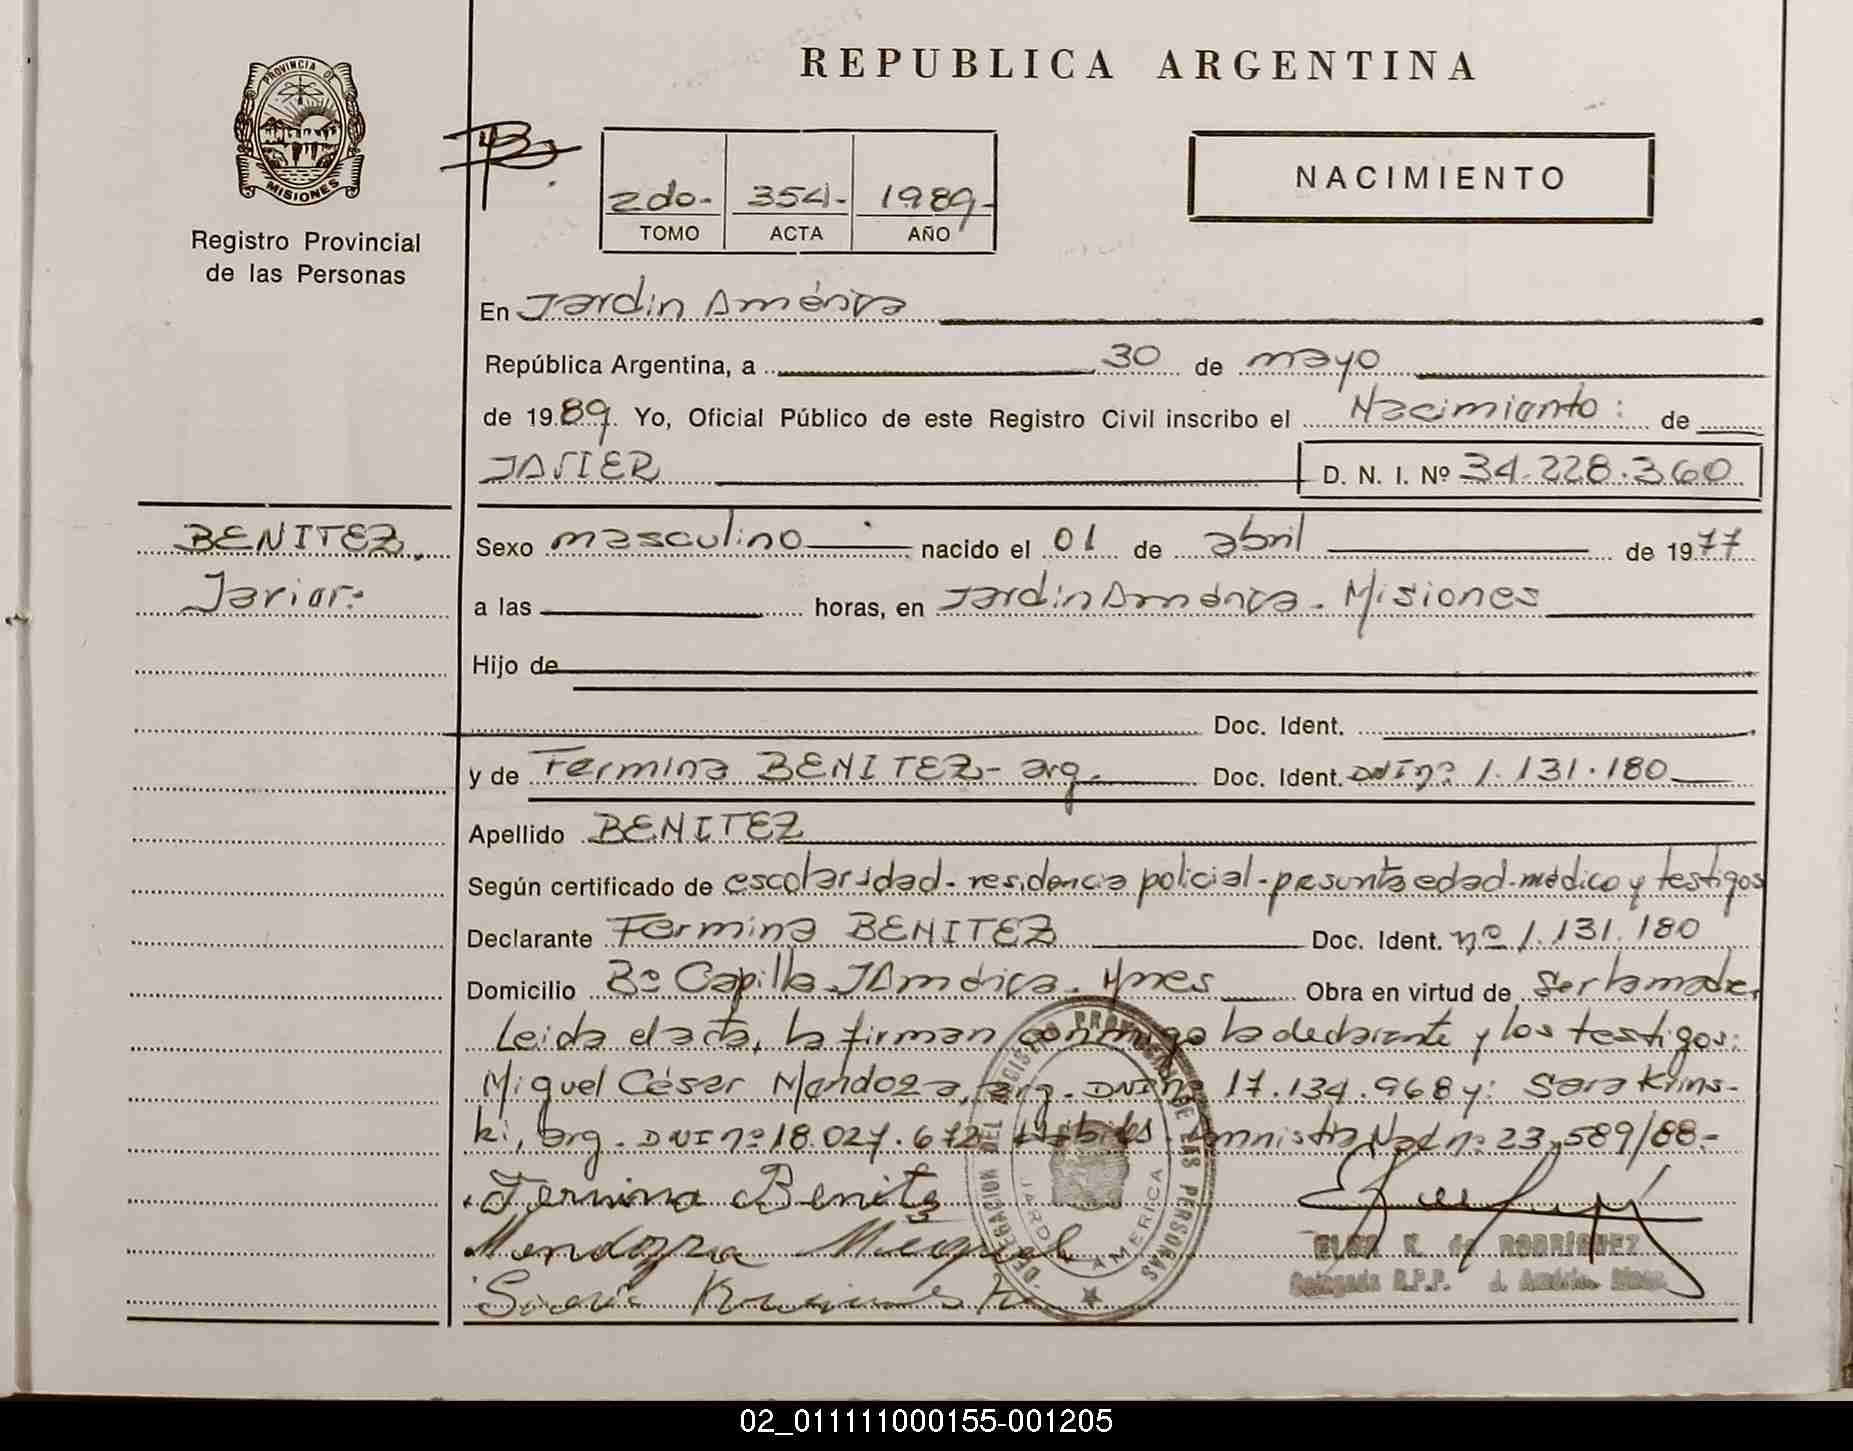 REPUBLICA ARGENTINA
PROVINCIA DE
MISIONES
Registro Provincial
de las Personas
2do.- 354.- 1989.-
TOMO ACTA AÑO
NACIMIENTO
En Jardín América
República Argentina, a 30 de mayo
de 1989. Yo, Oficial Público de este Registro Civil inscribo el Nacimiento: de
JAVIER D. N. I. Nº 34.228.360
BENITEZ,
Javier.-
Sexo masculino nacido el 01 de abril de 1977
a las horas, en Jardín América. Misiones
Hijo de
Doc. Ident.
y de Fermina BENITEZ - arg. Doc. Ident. DNI nº 1.131.180
Apellido BENITEZ
Según certificado de escolaridad - residencia policial - presunta edad - médico y testigos
Declarante Fermina BENITEZ Doc. Ident. nº 1.131.180
Domicilio Bº Capilla J América. Mnes Obra en virtud de Ser la madre.
Leida el acta, la firman conmigo la declarante y los testigos:
Miguel César Mendoza, arg. DNI nº 17.134.968 y: Sara Krins-
ki, arg. DNI nº 18.027.672 Hábiles. Amnistia Nac nº 23.589/88.-
Fermina Benitez
Mendoza Miguel
Sara Krinski
DELEGACION DEL REGISTRO PROVINCIAL DE LAS PERSONAS
JARDIN AMERICA
ELSA K. de RODRÍGUEZ
Delegada R.P.P. J. América Mnes.
02_011111000155-001205